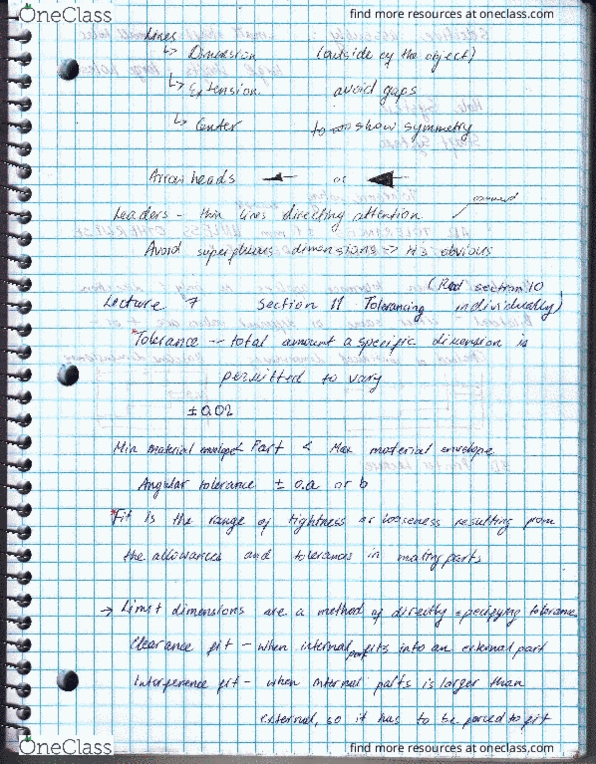 OneClass
find more resources at oneclass.com
Lines
↳ Dimension (outside of the object)
↳ Extension avoid gaps
↳ Center to show symmetry
Arrow heads or
Leaders - thin lines directing attention
Avoid superfluous dimensions -> obvious
(Read section 10
Lecture 7 Section 11 Tolerancing individually)
*Tolerance -- total amount a specific dimension is
permitted to vary
±0.02
Min material envelope < Part < Max material envelope
Angular tolerance ± 0.a or b
*Fit is the range of tightness or looseness resulting from
the allowances and tolerances in mating parts
→ Limit dimensions are a method of directly specifying tolerance
Clearance fit - when internal part fits into an external part
Interference fit - when internal parts is larger than
external, so it has to be forced to fit
OneClass
find more resources at oneclass.com